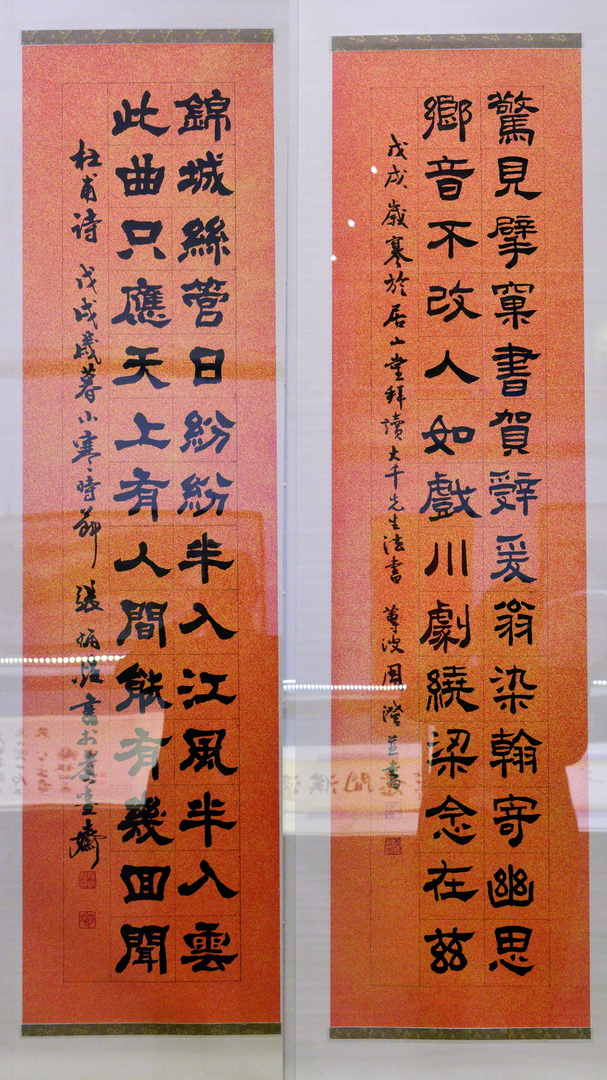 驚見擘窠書賀辭爰翁染翰寄幽思
鄉音不改人如戲川劇繞梁念在茲
戊戌歲寒於居山堂拜讀大千先生法書 蓴波周澄並書
錦城絲管日紛紛半入江風半入雲
此曲只應天上有人間能有幾回聞
杜甫诗 戊戌歲暮小寒時節 張炳煌書於